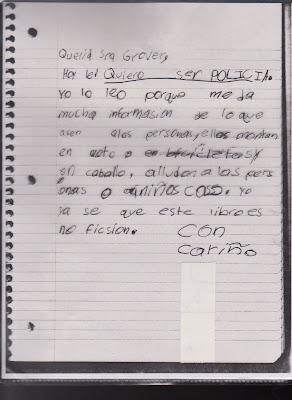 Querid Sra Grover,
Hoy leí Quiero ser POLICIA.
yo lo leo porque me da
mucha informasion de lo que
asen alos personas, ellos montan
en auto o en bicicletas y
en caballo, alludan a las pers
onas o a niños
ya se que este libro es
no ficsion. con
cariño